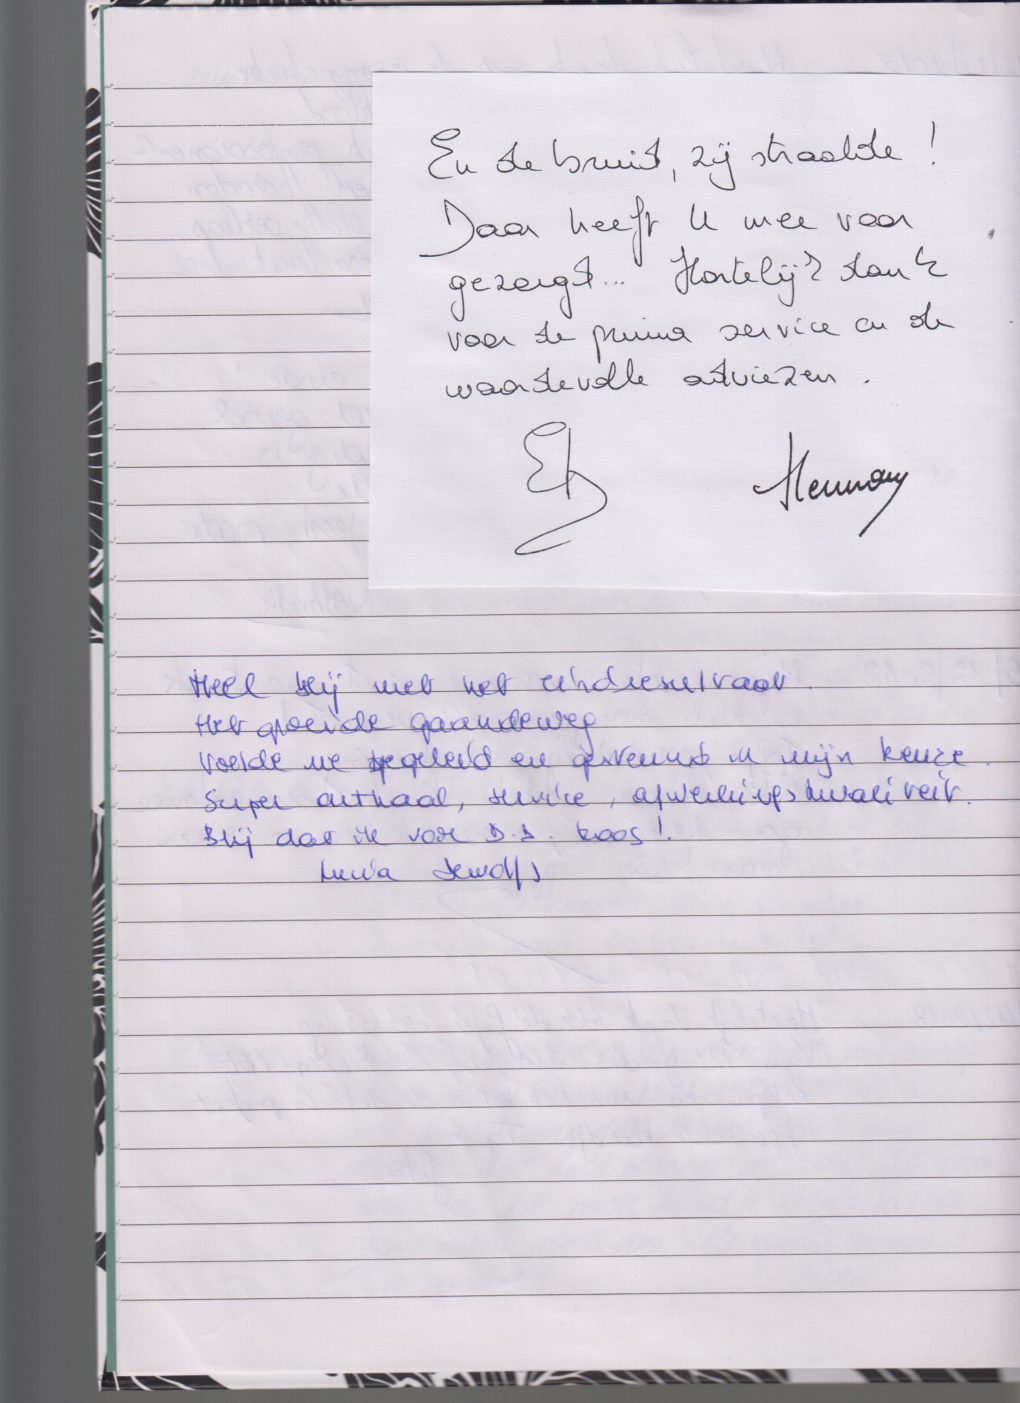 En de bruid, zij straalde !
Daar heeft U mee voor
gezorgd... Hartelijk dank
voor de prima service en de
waardevolle adviezen .
Herman
Heel blij met het eindresultaat .
Het groeide gaandeweg
Voelde me begeleid en gesteund in mijn keuze .
Super onthaal, service , afwerkingskwaliteit.
Blij dat ik voor D.D. koos !